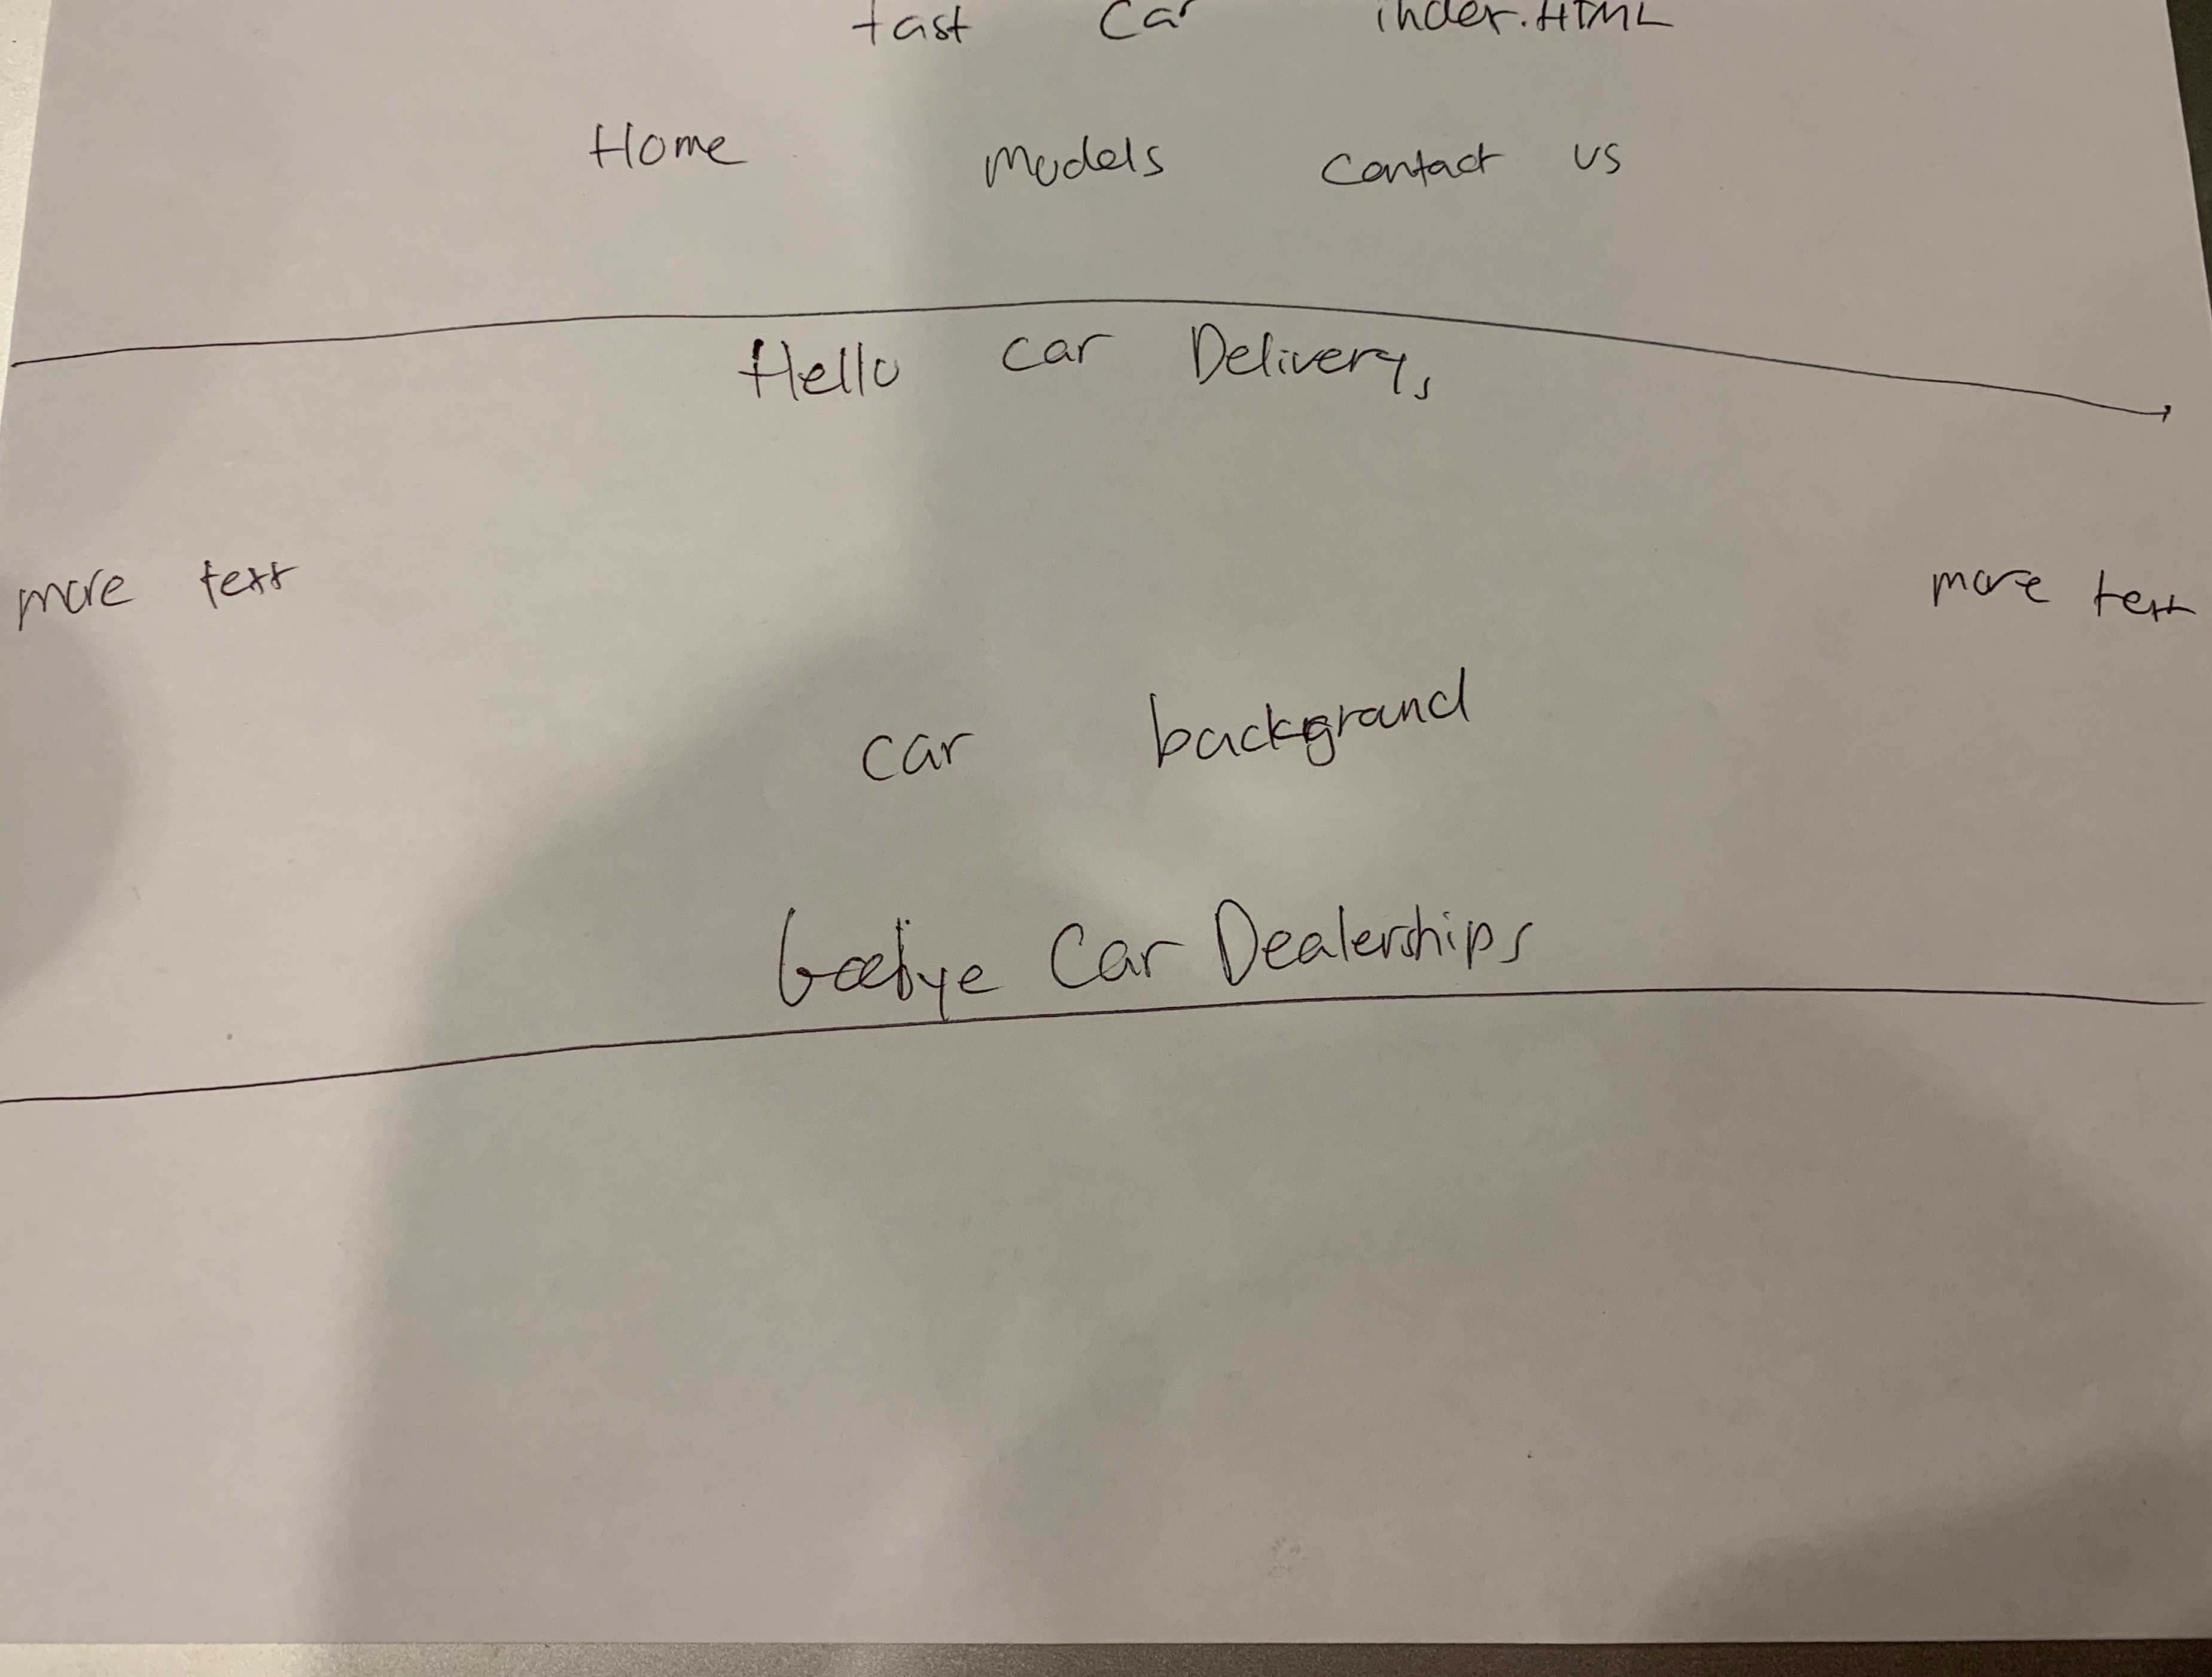 fast Car index.HTML
Home Models Contact us
Hello Car Delivery,
more text more text
car background
Car Dealerships